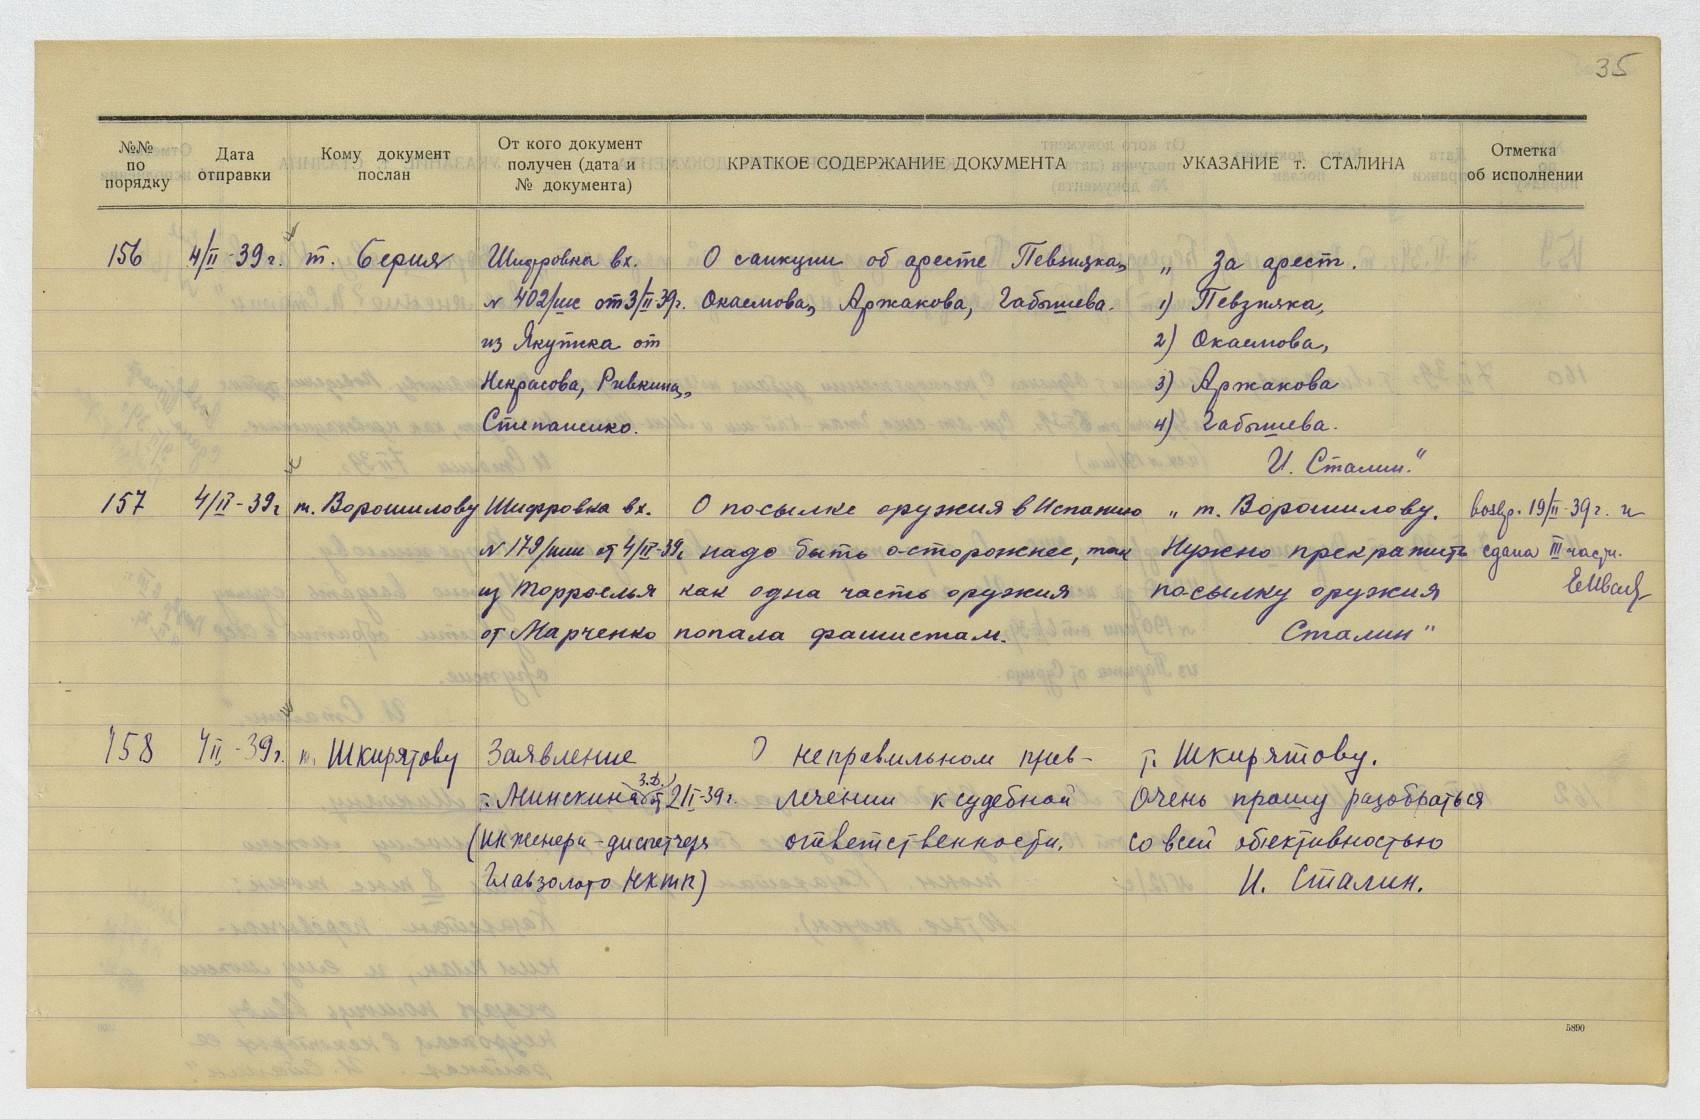 35
№№ по порядку
Дата отправки
Кому документ послан
От кого документ получен (дата и № документа)
КРАТКОЕ СОДЕРЖАНИЕ ДОКУМЕНТА
УКАЗАНИЕ т. СТАЛИНА
Отметка об исполнении
156
4/II-39г.
т. Берия
Шифровка вх.
№ 402/ш от 3/II-39г.
из Якутска от
Некрасова, Ривкина,
Степаненко.
О санкции об аресте Певзняка,
Окаемова, Аржакова, Габышева.
„За арест.
1) Певзняка,
2) Окаемова,
3) Аржакова
4) Габышева.
И. Сталин."
157
4/II-39г
т. Ворошилову
Шифровка вх.
№ 179/ш от 4/II-39г
из
от Марченко
О посылке оружия в Испанию
надо быть осторожнее, так
как одна часть оружия
попала фашистам.
„т. Ворошилову.
Нужно прекратить
посылку оружия
Сталин"
возвр. 19/II-39г. и
сдана III части.
158
4/II-39г.
т. Шкирятову
Заявление
т. Минскина З.Д. от 2/II-39г.
(инженера-диспетчера
Главзолото НКТП)
О неправильном прив-
лечении к судебной
ответственности.
т. Шкирятову.
Очень прошу разобраться
со всей объективностью
И. Сталин.
5890